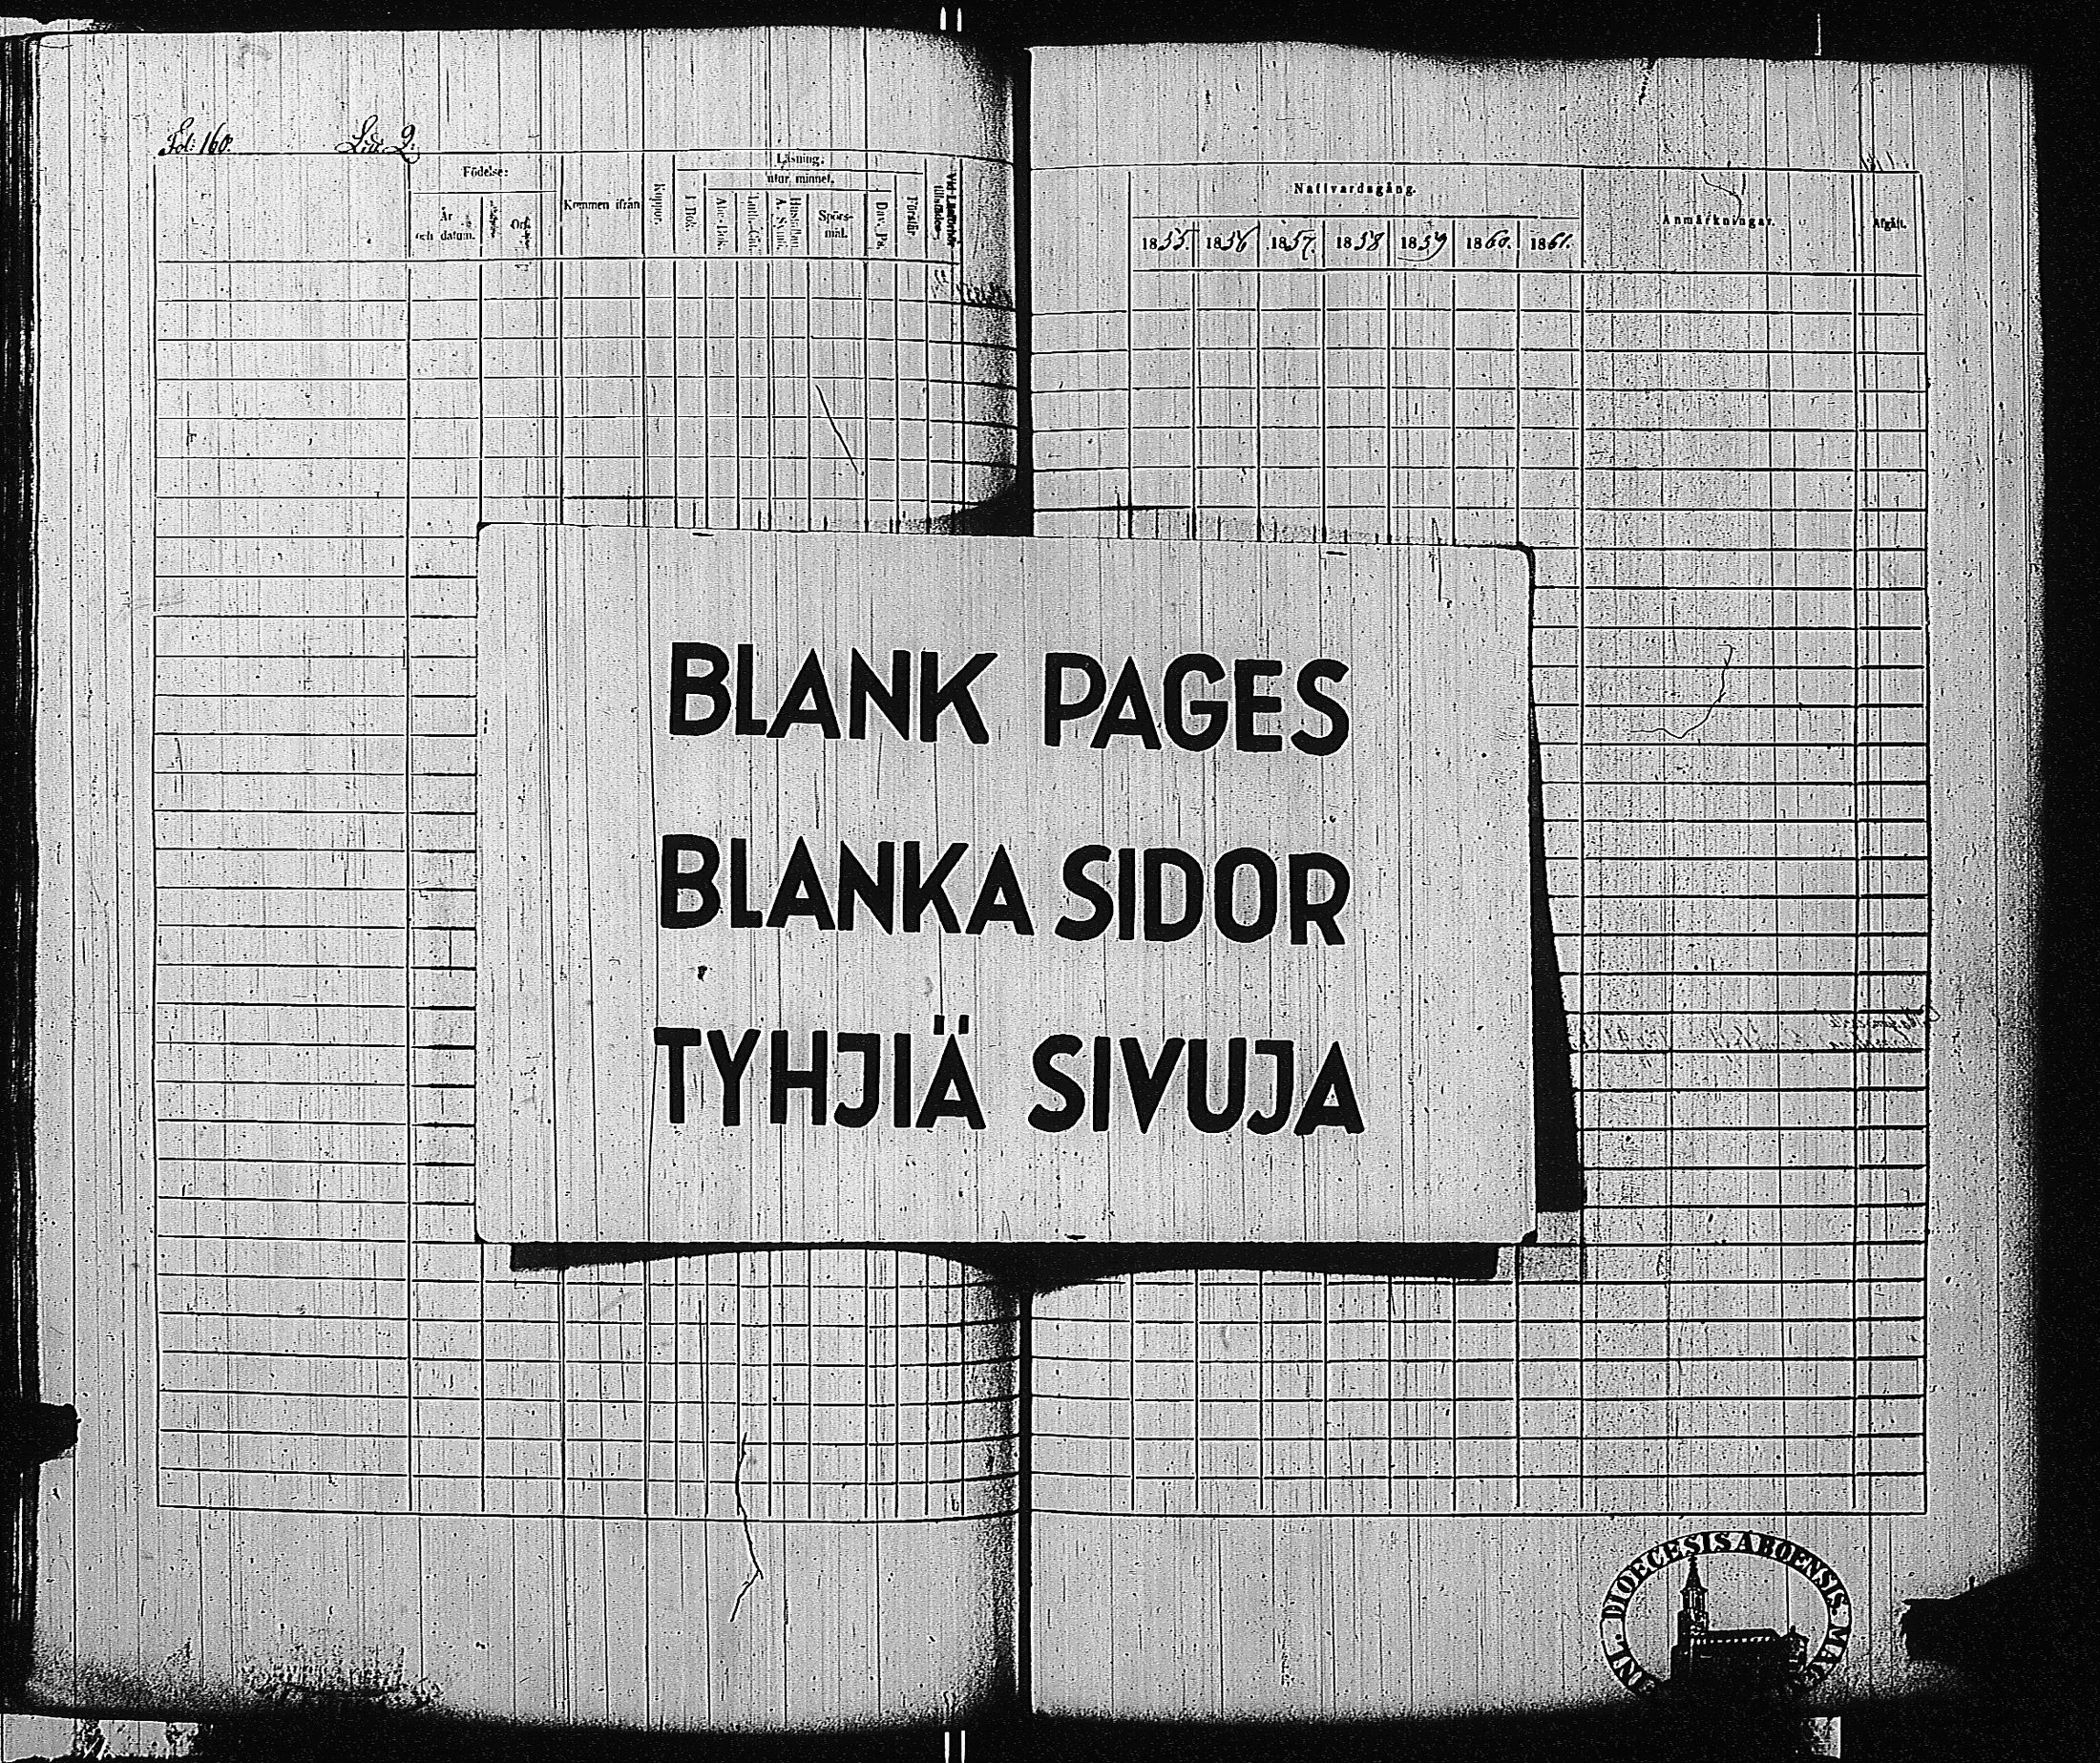 Fol: 160.
Litt. 2.
Födelse:
Läsning.
utur minnet.
År
och datum.
Ort.
Kommen ifrån
Koppor.
I Bok.
Abc-Bok.
Luth. Cat.
Hustaflan
A. Symb.
Spörs-
mål.
Dav. Ps.
Förstår
Nattvardsgång.
1855. 1856 1857. 1858 1859 1860. 1861.
Anmärkningar.
Afgått.
BLANK PAGES
BLANKA SIDOR
TYHJIÄ SIVUJA
DIOECESIS ABOENSIS.